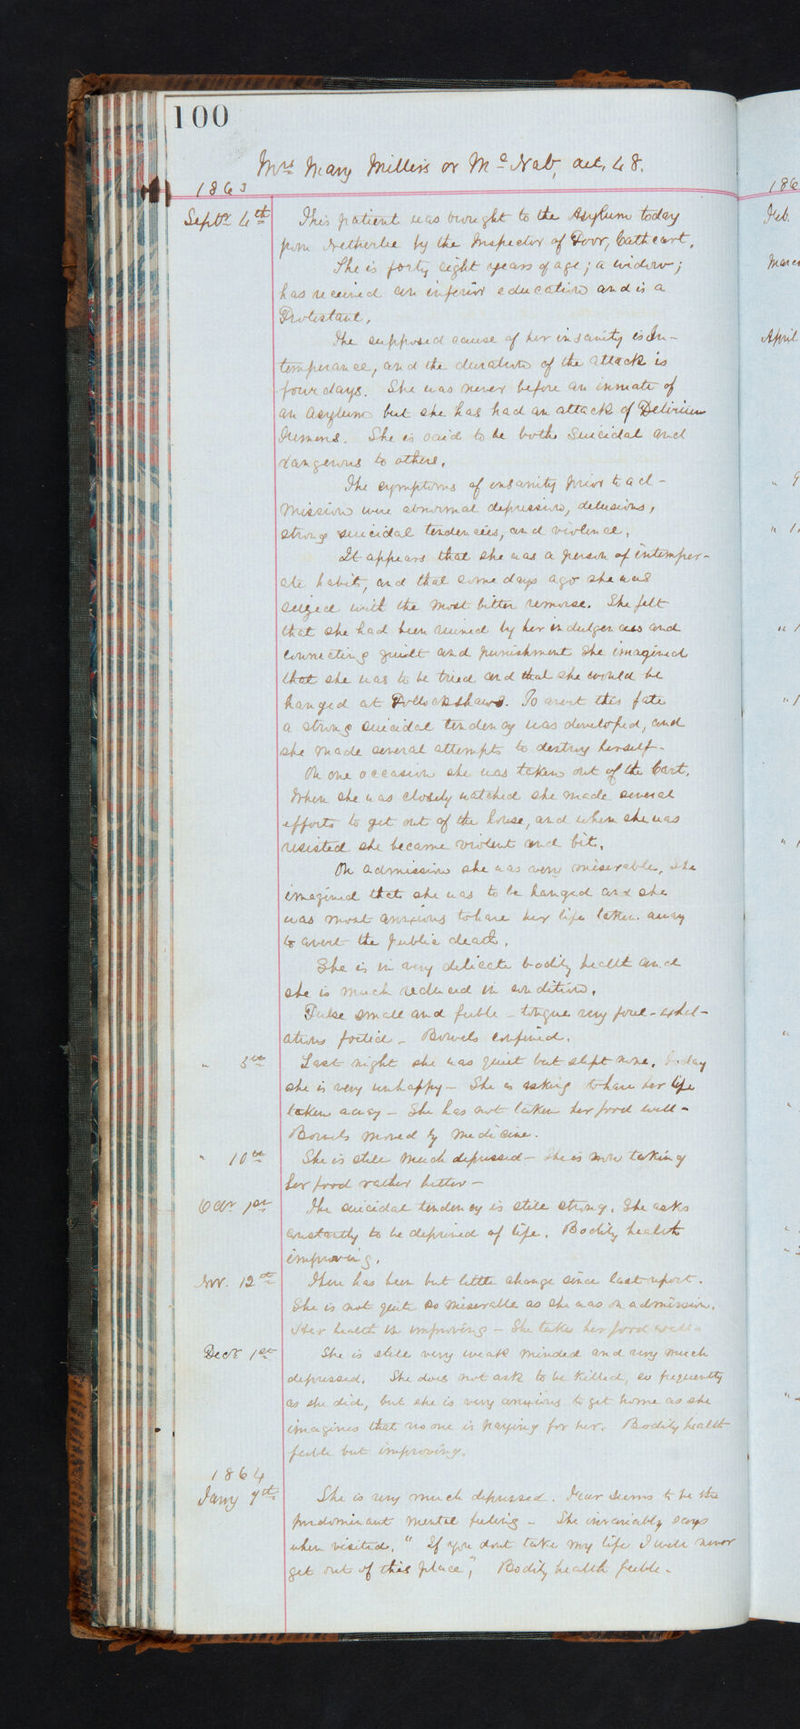 100
Mrs Mary Millers or McNab, aet. 48.
1863
Septr 4th This patient was brought to the Asylum today
from Netherlee by the Inspector of Poor, Cathcart.
She is forty eight years of age; a widow;
has received an inferior education and is a
Protestant.
The supposed cause of her insanity is In-
temperance, and the duration of the attack is
four days. She was never before an inmate of
an Asylum but she has had an attack of Delirium
Tremens. She is said to be both Suicidal and
dangerous to others.
The symptoms of insanity prior to ad-
mission were abnormal depression, delusions,
strong suicidal tendencies, and violence.
It appears that she was a person of intemper-
ate habits, and that some days ago she was
seized with the most bitter remorse. She felt
that she had been ruined by her indulgences and
connecting guilt and punishment she imagined
that she was to be tried and that she would be
hanged at Pollockshaws. To avert this fate
a strong suicidal tendency was developed, and
she made several attempts to destroy herself.
On one occasion she was taken out of the Cart.
When she was closely watched she made several
efforts to get out of the house, and when she was
resisted she became violent and bit.
On admission she was very miserable, she
imagined that she was to be hanged and she
was most anxious to have her life taken away
to avert the public death.
She is in very delicate bodily health and
she is much reduced in condition.
Pulse small and feeble - tongue very foul - exhal-
ations foetid - Bowels confined.
" 5th Last night she was quiet but slept none. Today
she is very unhappy - She is asking to have her life
taken away - She has not taken her food well -
Bowels moved by medicine.
" 10th She is still much depressed - She is now taking
her food rather better -
Octr 1st The suicidal tendency is still strong. She asks
constantly to be deprived of life. Bodily health
improving.
Nov. 12th There has been but little change since last report.
She is not quite so miserable as she was on admission.
Her health is improving - She takes her food well -
Decr 1st She is still very weak minded and very much
depressed. She does not ask to be killed, so frequently
as she did, but she is very anxious to get home as she
imagines that no one is paying for her. Bodily health
feeble but improving.
1864
Jany 9th She is very much depressed. Fear seems to be the
predominant mental feeling - She invariably says
when visited, "If you dont take my life I will never
get out of this place", Bodily health feeble -
186
Feb.
April